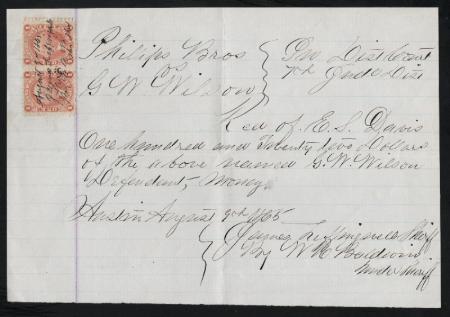 Philips Bros
vs
G W Wilson
In Dist Court
7th Jud Dist
Recd of E. S. Davis
One hundred and Twenty two Dollars
of the above named G. W. Wilson
Defendent, Money
Austin August 1865
James Sheriff
By W H Baldwin
Under Sheriff